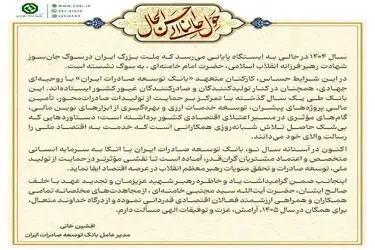 حول حالنا الی احسن الحال
سـال ۱۴۰۴ در حالی به ایستگاه پایانی می‌رسد که ملت بزرگ ایران در سوگ جان‌سوز
شهادت رهبر فرزانه انقلاب اسلامی، حضرت امام خامنه‌ای، به سوگ نشسته است.
در این شرایط حساس، کارکنان متعهد «بانک توسعه صادرات ایران» با روحیه‌ای
جهادی، همچنان در کنار تولیدکنندگان و صادرکنندگان غیور کشور ایستاده‌اند. این
بانک طی یک سال گذشته با تمرکز بر حمایت از تولیدات صادرات‌محور، تأمین
مالی پروژه‌های پیشران، توسعه خدمات ارزی و بهره‌گیری از ابزارهای نوین مالی،
گام‌های مؤثری در مسیر اعتلای اقتصادی کشور برداشته است. این دستاوردها
بی‌شک حاصل تلاش شبانه‌روزی همکارانی است که خدمت به اقتصاد ملی را
رسالت والای خود می‌دانند.
اکنون در آستانه سال نو، بانک توسعه صادرات ایران با اتکا به سرمایه انسانی
متخصص و اعتماد مشتریان گران‌قدر، آماده است تا نقشی مؤثرتر در حمایت از تولید
ملی، توسعه صادرات و تحقق منویات رهبر معظم انقلاب در عرصه اقتصاد ایفا نماید.
اینجانب ضمن گرامیداشت یاد و خاطره رهبر شهید عزیزمان و تجدید عهد با خلف
صالح ایشان، حضرت آیت‌الله سید مجتبی خامنه‌ای، از مجاهدت‌های مخلصانه تمامی
همکاران و همراهی ارزشمند فعالان اقتصادی قدردانی نموده و از درگاه خداوند متعال،
برای همگان در سال ۱۴۰۵، آرامش، عزت و توفیقات الهی مسألت دارم.
افشین خانی
مدیر عامل بانک توسعه صادرات ایران